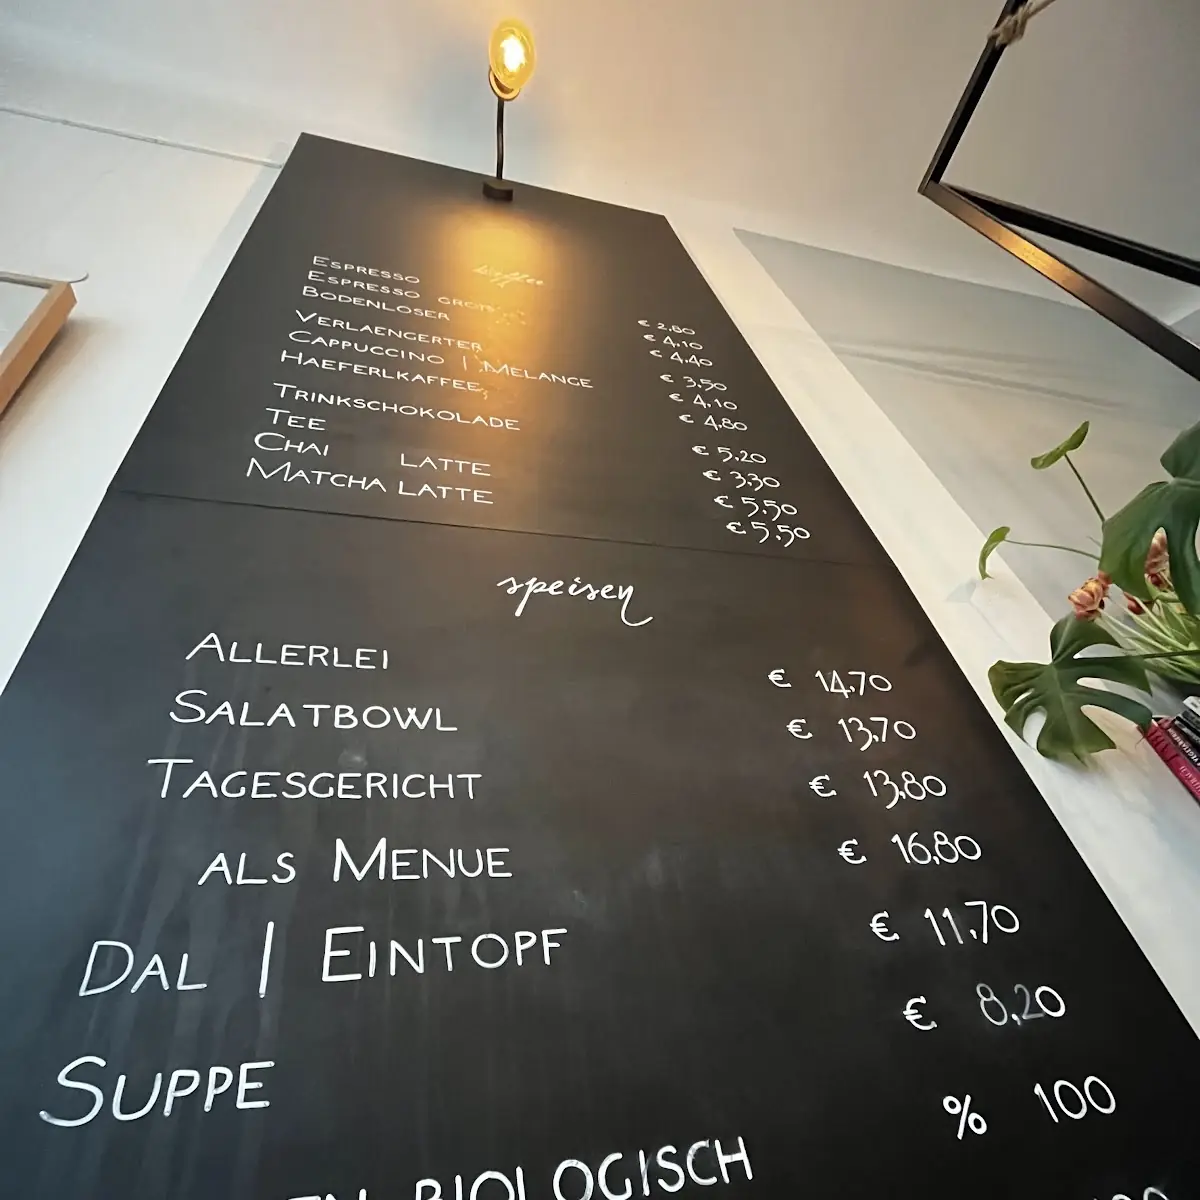 kaffee
ESPRESSO € 2,80
ESPRESSO GROSS € 4,10
BODENLOSER € 4,40
VERLAENGERTER € 3,50
CAPPUCCINO | MELANGE € 4,10
HAEFERLKAFFEE € 4,80
TRINKSCHOKOLADE € 5,20
TEE € 3,30
CHAI LATTE € 5,50
MATCHA LATTE € 5,50
speisen
ALLERLEI € 14,70
SALATBOWL € 13,70
TAGESGERICHT € 13,80
ALS MENUE € 16,80
DAL | EINTOPF € 11,70
SUPPE € 8,20
BIOLOGISCH % 100